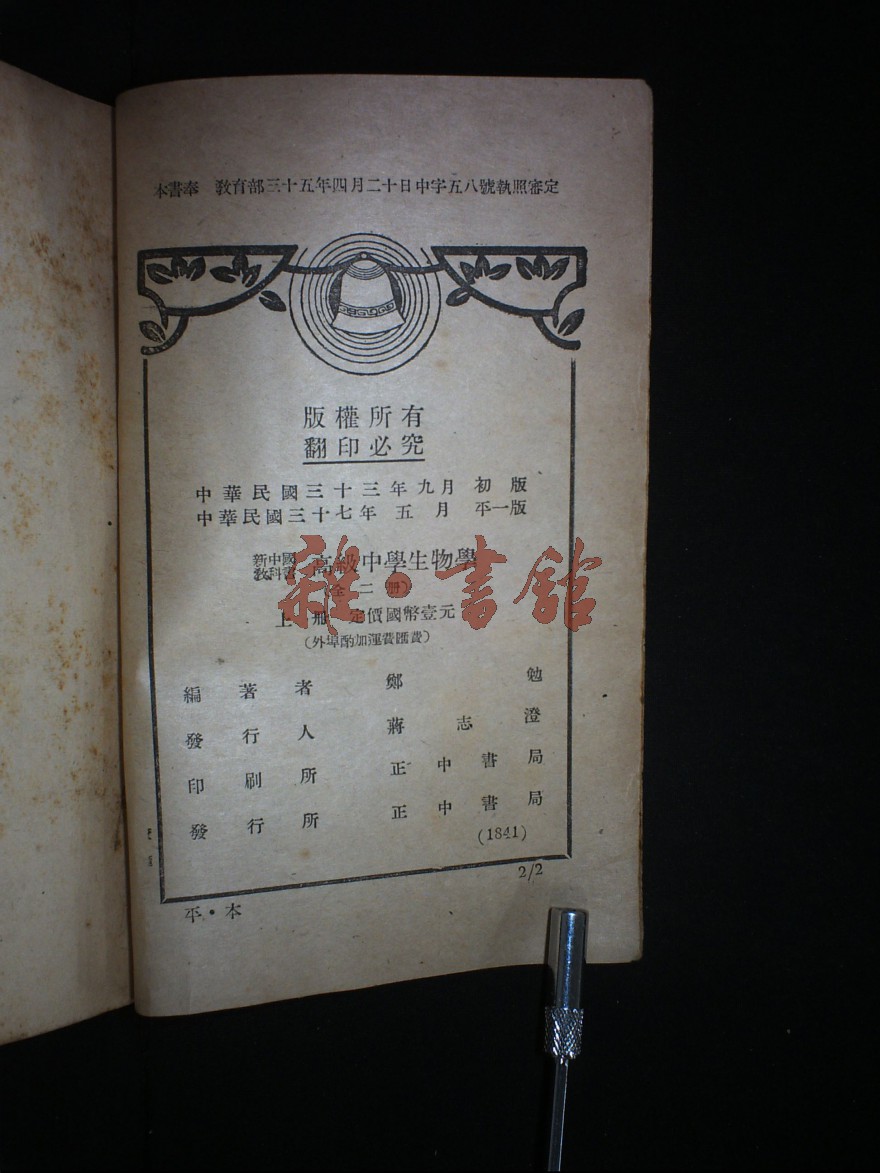 本書奉 敎育部三十五年四月二十日中字五八號執照審定
版權所有
翻印必究
中華民國三十三年九月 初版
中華民國三十七年五月 平一版
新中國
敎科書
高級中學生物學
(全二冊)
上冊 定價國幣壹元
(外埠酌加運費匯費)
編著者 鄭勉
發行人 蔣志澄
印刷所 正中書局
發行所 正中書局
(1841)
2/2
平・本
雜·書館